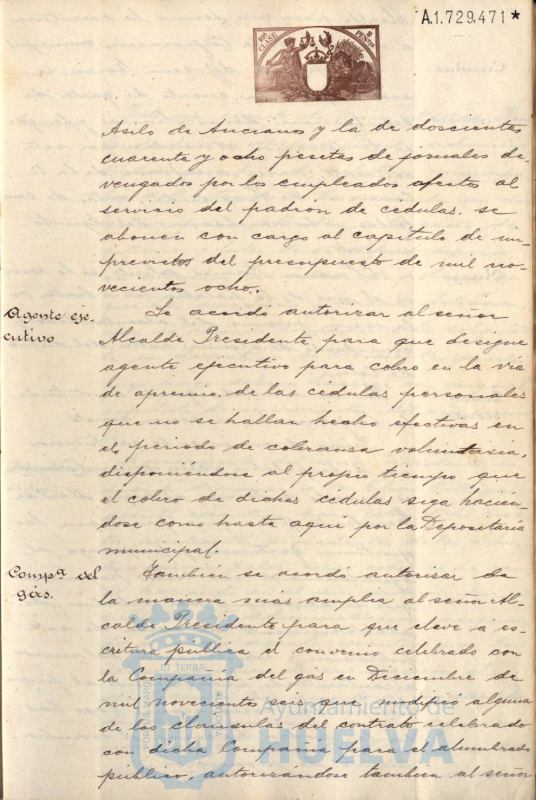 A.1.729.471*
10ª CLASE
2 PESETAS
Asilo de Ancianos y la de doscientas
cuarenta y ocho pesetas de jornales de-
vengados por los empleados afectos al
servicio del padrón de cédulas, se
abonen con cargo al capitulo de im-
previstos del presupuesto de mil no-
vecientos ocho.
Agente eje-
cutivo
Se acordó autorizar al señor
Alcalde Presidente para que designe
agente ejecutivo para cobro en la via
de apremio, de las cédulas personales
que no se hallan hecho efectivas en
el periodo de cobranza voluntaria,
disponiendose al propio tiempo que
el cobro de dichas cédulas siga hacien-
dose como hasta aqui por la Depositaría
municipal.
Compª del
gas.
También se acordó autorizar de
la manera más amplia al señor Al-
calde Presidente para que eleve á es-
critura publica el convenio celebrado con
la Compañia del gas en Diciembre de
mil novecientos seis que modificó alguna
de las clausulas del contrato celebrado
con dicha Compañia para el alumbrado
público, autorizándose tambien al señor
Ayuntamiento de
HUELVA